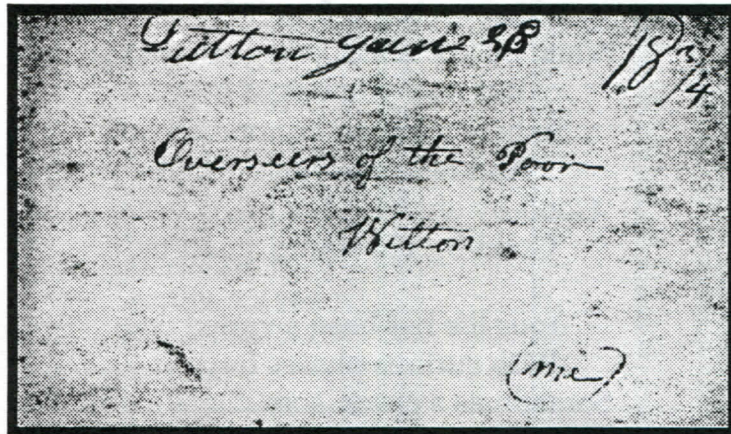 Dutton June 28 18 3/4
Overseers of the Poor
Wilton
(me)